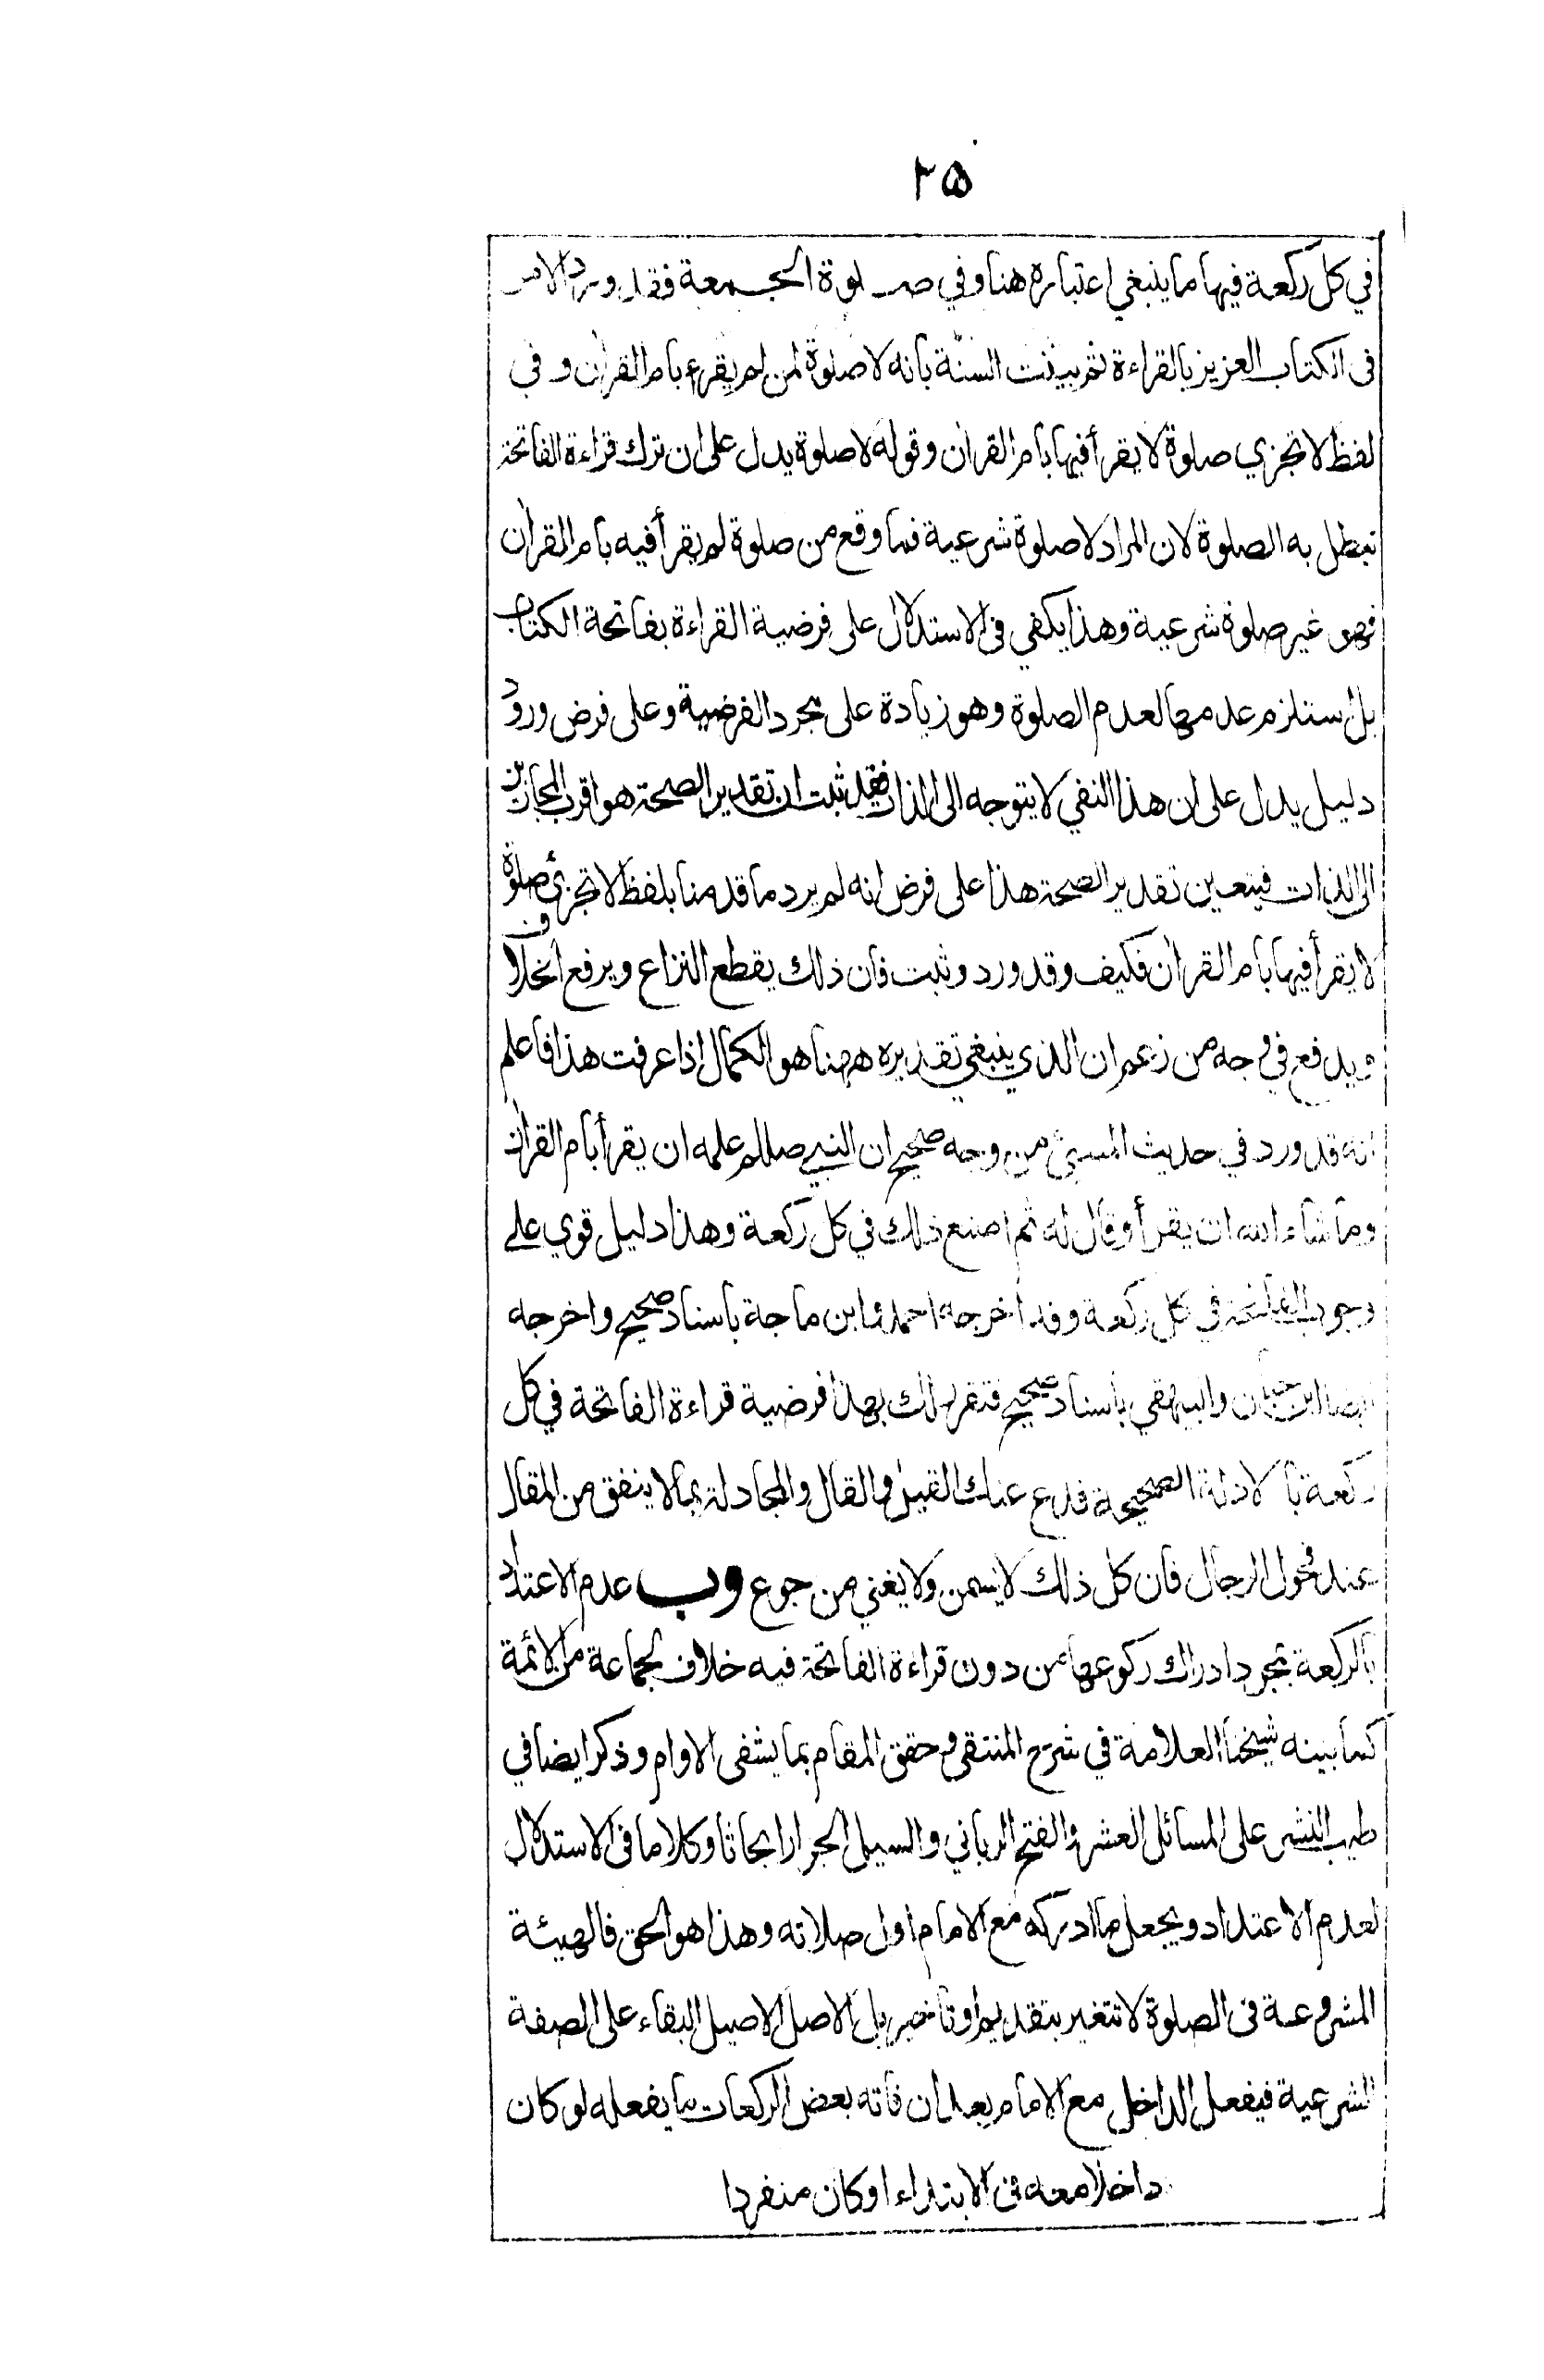 ٢٥
في كل ركعة فيها ما ينبغي اعتباره هنا وفي صلوة الجمعة فقد ورد الامر
فى الكتاب العزيز بالقراءة ثم بينت السنّة بانه لا صلوة لمن لم يقرء بام القران و في
لفظ لا تجزي صلوة لا يقرأ فيها بام القران وقوله لا صلوة يدل على ان ترك قراءة الفاتحة
تبطل به الصلوة لان المراد لا صلوة شرعية فما وقع من صلوة لم يقرأ فيه بام القران
فهو غير صلوة شرعية وهذا يكفي فى الاستدلال على فرضية القراءة بفاتحة الكتاب
بل استلزم عدمها لعدم الصلوة وهو زيادة على مجرد الفرضية وعلى فرض ورود
دليل يدل على ان هذا النفي لا يتوجه الى الذات فقد ثبت ان تقدير الصحة هو اقرب المجازين
الى الذات فيتعين تقدير الصحة هذا على فرض انه لم يرد ما قدمنا بلفظ لا تجزئ صلوة
لا يقرأ فيها بام القران فكيف وقد ورد وثبت فان ذلك يقطع النزاع ويرفع الخلاف
ويدفع في وجه من زعم ان الذي ينبغي تقديره ههنا هو الكمال اذا عرفت هذا فاعلم
انه قد ورد في حديث المسيئ من وجه صحيح ان النبي صللم علمه ان يقرأ بام القران
وما شاء الله ان يقرأ وقال له ثم اصنع ذلك في كل ركعة وهذا دليل قوي على
وجوب الفاتحة في كل ركعة وقد اخرجه احمد وابن ماجة باسناد صحيح واخرجه
ايضا ابن حبان والبيهقي باسناد صحيح فتقرر لك بهذا فرضية قراءة الفاتحة في كل
ركعة بالادلة الصحيحة فدع عنك القيل والقال والمجادلة بما لا ينفق من المقال
عند فحول الرجال فان كل ذلك لا يسمن ولا يغني من جوع و ب عدم الاعتداد
بالركعة بمجرد ادراك ركوعها من دون قراءة الفاتحة فيه خلاف لجماعة من الائمة
كما بينه شيخنا العلامة في شرح المنتقى وحقق المقام بما يشفى الاوام وذكر ايضا في
طيب النشر على المسائل العشر والفتح الرباني والسيل الجرار ابحاثا وكلاما فى الاستدلال
لعدم الاعتداد ويجعل ما ادركه مع الامام اول صلاته وهذا هو الحق فالهيئة
المشروعة فى الصلوة لا تتغير بتقديم او تاخير بل الاصل الاصيل البقاء على الصفة
الشرعية فيفعل الداخل مع الامام بعد ان فاته بعض الركعات ما يفعله لو كان
داخلا معه فى الابتداء او كان منفردا